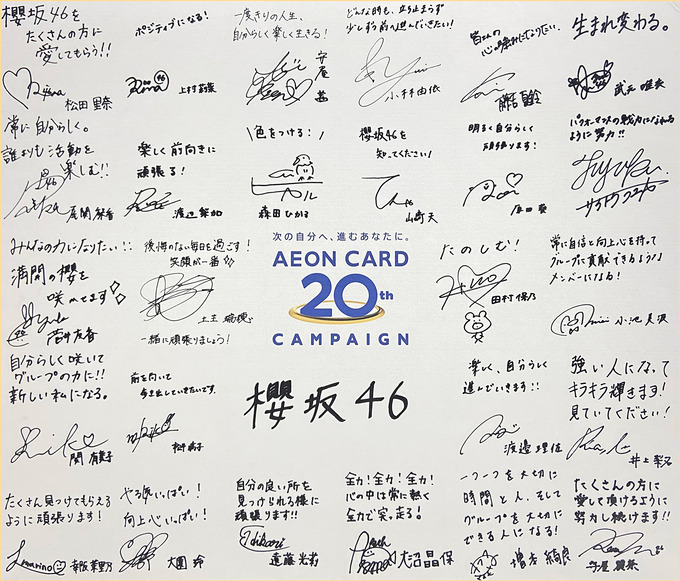 櫻坂46を
たくさんの方に
愛してもらう!!
松田 里奈
ポジティブになる!
上村 莉菜
一度きりの人生、
自分らしく楽しく生きる!
守屋 茜
どんな時も、立ち止まらず
少しずつ前へ進んでいきたい!
小林 由依
皆さんの
心の支えになりたい。
藤吉 夏鈴
生まれ変わる。
武元 唯衣
常に自分らしく。
誰よりも活動を
楽しむ!!
尾関 梨香
楽しく前向きに
頑張る!
渡辺 梨加
色をつける!
森田 ひかる
櫻坂46を
知ってください!
山﨑 天
明るく自分らしく
頑張ります!
原田 葵
パフォーマンスの
ように努力!!
みんなの力になりたい!!
満開の櫻を
咲かせます
菅井 友香
後悔のない毎日を過ごす!
笑顔が一番
土生 瑞穂
一緒に頑張りましょう!
次の自分へ、進むあなたに。
AEON CARD
20th
CAMPAIGN
櫻坂46
たのしむ!
田村 保乃
常に自信と向上心を持って
グループに貢献できるような
メンバーになる!
小池 美波
自分らしく咲いて
グループの力に!!
新しい私になる。
関 有美子
前を向いて
歩き出していきたいです。
松平 璃子
楽しく、自分らしく
進んでいきます!!
渡邉 理佐
強い人になって
キラキラ輝きます!
見ていてください!
井上 梨名
たくさん見つけてもらえる
ように頑張ります!
幸阪 茉里乃
やる気いっぱい!
向上心いっぱい!
大園 玲
自分の良い所を
見つけられる様に
頑張ります!!
遠藤 光莉
全力!全力!全力!
心の中は常に熱く
全力で突っ走る。
大沼 晶保
一つ一つを大切に
時間と人、そして
グループを大切に
できる人になる!
増本 綺良
たくさんの方に
愛して頂けるように
努力し続けます!!
守屋 麗奈